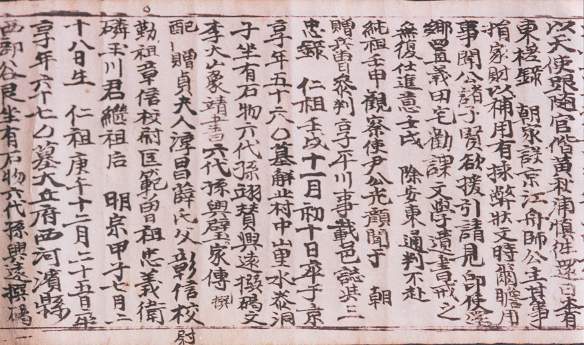 以天使跟隨官偕黃秋浦慎任還日本有
東槎錄 朝家設京江舟師公主其事
捐家財以補用有採弊狀文時爾瞻用
事聞公諸子賢欲援引請見卽使還
鄉置義田宅勸課文學讀書戒之
無復仕進意壬戌 除安東通判不赴
純祖壬申觀察使尹公光顔聞于 朝
贈兵曹參判享平川事載邑誌及三
忠錄 仁祖壬戌十一月初十日卒于京
享年五十六 墓靜止村中山里水泰洞
子坐有石物六代孫翊贊興遠撰碣文
李大山象靖書六代孫興璧家傳 撰
配 贈貞夫人淳昌薛氏父彰信校
尉
勤祖章信校尉匡範曾祖忠義衛
磷玉川君繼祖后 明宗甲子七月二
十八日生 仁祖庚午十二月二十五日卒
享年六十七 墓大丘府西河濱縣
西部谷艮坐有石物六代孫興遠撰碣